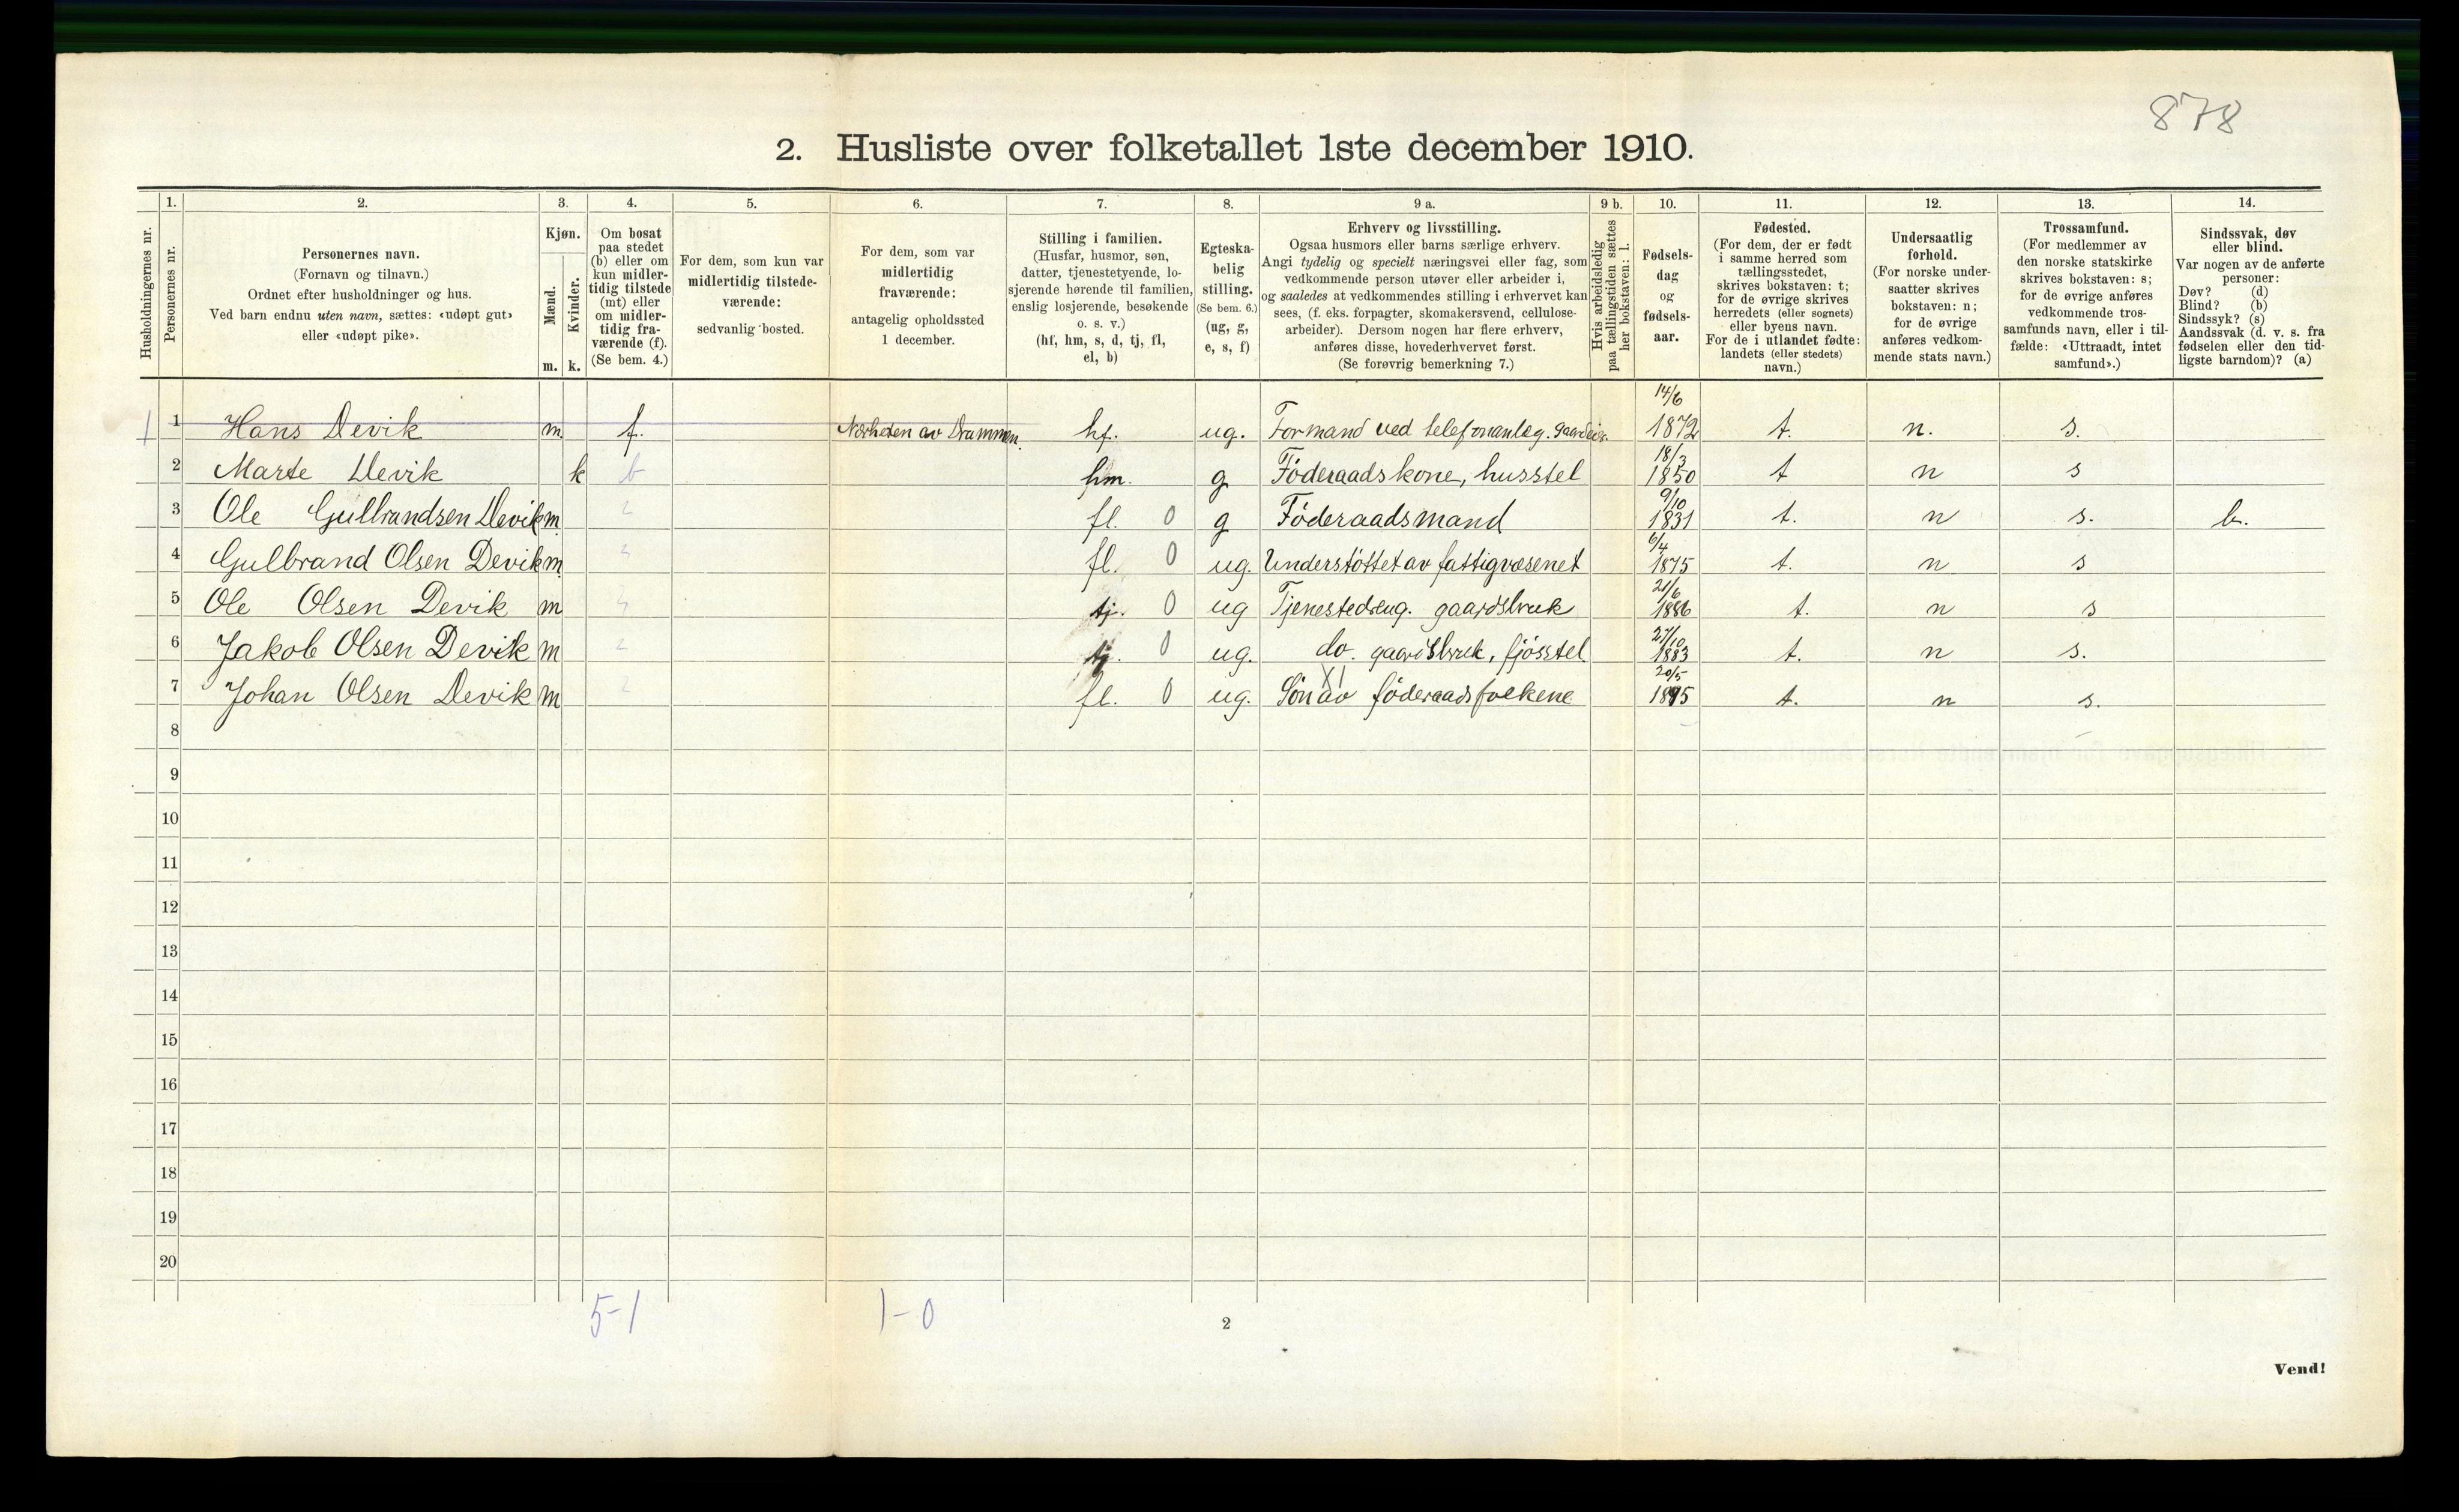 878
2. Husliste over folketallet 1ste december 1910.
Husholdningernes nr.
1.
Personernes nr.
2.
Personernes navn.
(Fornavn og tilnavn.)
Ordnet efter husholdninger og hus.
Ved barn endnu uten navn, sættes: «udøpt gut»
eller «udøpt pike».
3.
Kjøn.
Mænd.
Kvinder.
m. k.
4.
Om bosat
paa stedet
(b) eller om
kun midler-
tidig tilstede
(mt) eller
om midler-
tidig fra-
værende (f).
(Se bem. 4.)
5.
For dem, som kun var
midlertidig tilstede-
værende:
sedvanlig bosted.
6.
For dem, som var
midlertidig
fraværende:
antagelig opholdssted
1 december.
7.
Stilling i familien.
(Husfar, husmor, søn,
datter, tjenestetyende, lo-
sjerende hørende til familien,
enslig losjerende, besøkende
o. s. v.)
(hf, hm, s, d, tj, fl,
el, b)
8.
Egteska-
belig
stilling.
(Se bem. 6.)
(ug, g,
e, s, f)
9 a.
Erhverv og livsstilling.
Ogsaa husmors eller barns særlige erhverv.
Angi tydelig og specielt næringsvei eller fag, som
vedkommende person utøver eller arbeider i,
og saaledes at vedkommendes stilling i erhvervet kan
sees, (f. eks. forpagter, skomakersvend, cellulose-
arbeider). Dersom nogen har flere erhverv,
anføres disse, hovederhvervet først.
(Se forøvrig bemerkning 7.)
9 b.
Hvis arbeidsledig
paa tællingstiden sættes
her bokstaven: l.
10.
Fødsels-
dag
og
fødsels-
aar.
11.
Fødested.
(For dem, der er født
i samme herred som
tællingsstedet,
skrives bokstaven: t;
for de øvrige skrives
herredets (eller sognets)
eller byens navn.
For de i utlandet fødte:
landets (eller stedets)
navn.)
12.
Undersaatlig
forhold.
(For norske under-
saatter skrives
bokstaven: n;
for de øvrige
anføres vedkom-
mende stats navn.)
13.
Trossamfund.
(For medlemmer av
den norske statskirke
skrives bokstaven: s;
for de øvrige anføres
vedkommende tros-
samfunds navn, eller i til-
fælde: «Uttraadt, intet
samfund».)
14.
Sindssvak, døv
eller blind.
Var nogen av de anførte
personer:
Døv? (d)
Blind? (b)
Sindssyk? (s)
Aandssvak (d. v. s. fra
fødselen eller den tid-
ligste barndom)? (a)
1 1 Hans Devik m. f. Nærheten av Drammen. hf. ug. Formand ved telefonanlæg. 14/6 1872 t. n. s.
2 Marte Devik k b hm. g Föderaadskone, husstel 18/3 1850 t n s
3 Ole Gulbrandsen Devik m. fl. 0 g Föderaadsmand 9/10 1831 t. n s. b.
4 Gulbrand Olsen Devik m. fl. 0 ug. Understöttet av fattigvæsenet 6/4 1875 t. n s
5 Ole Olsen Devik m tj. 0 ug Tjenestedreng. gaardsbruk 21/6 1886 t. n s
6 Jakob Olsen Devik m tj. 0 ug. do. gaardsbruk, fjösstel 27/10 1883 t. n s.
7 Johan Olsen Devik m fl. 0 ug. Sön av föderaadsfolkene 20/5 1895 t. n s.
8
9
10
11
12
13
14
15
16
17
18
19
20
5-1 1-0
2
Vend!